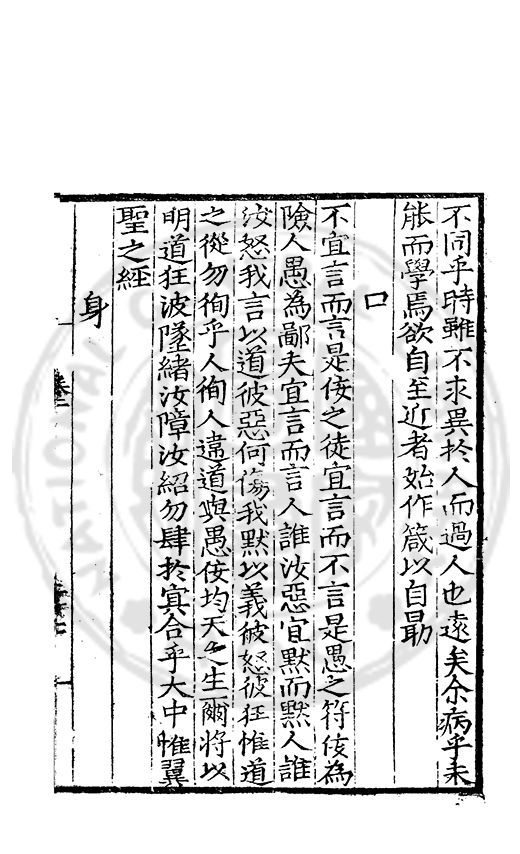 不同乎時雖不求異於人而過人也遠矣余病乎未
能而學焉欲自至近者始作箴以自勖
口
不宜言而言是佞之徒宜言而不言是愚之符佞為
險人愚為鄙夫宜言而言人誰汝惡宜默而默人誰
汝怒我言以道彼惡何傷我默以義彼怒彼狂惟道
之從勿徇乎人徇人違道與愚佞均天之生爾將以
明道狂波墜緒汝障汝紹勿肆於寞合乎大中惟翼
聖之經
身
卷三